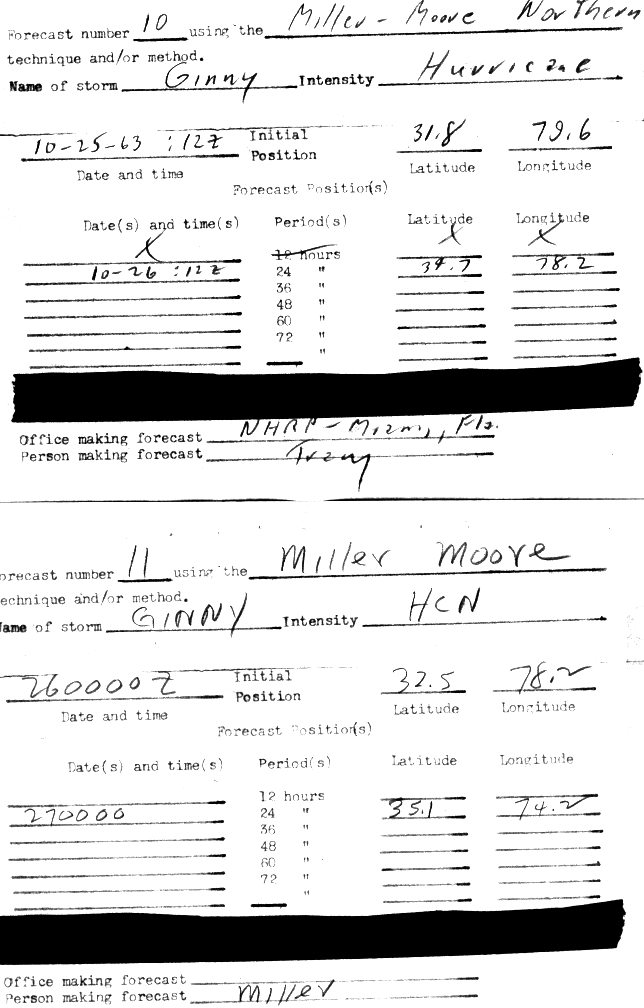 Forecast number 10 using the Miller - Moore Northern
technique and/or method.
Name of storm Ginny Intensity Hurricane
10-25-63 :12Z Initial Position 31.8 79.6
Date and time Latitude Longitude
Forecast Position(s)
Date(s) and time(s) Period(s) Latitude Longitude
X 12 hours X X
10-26 :12Z 24 " 34.7 78.2
36 "
48 "
60 "
72 "
"
Office making forecast NHRP - Miami, Fla.
Person making forecast
orecast number 11 using the Miller Moore
echnique and/or method.
ame of storm GINNY Intensity HCN
260000Z Initial Position 32.5 78.2
Date and time Latitude Longitude
Forecast Position(s)
Date(s) and time(s) Period(s) Latitude Longitude
12 hours
270000 24 " 35.1 74.2
36 "
48 "
60 "
72 "
"
Office making forecast
Person making forecast Miller